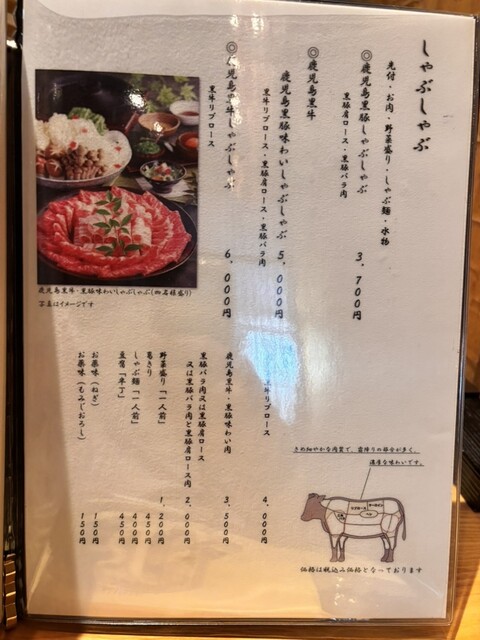 しゃぶしゃぶ
先付・お肉・野菜盛り・しゃぶ麺・水物
◎鹿児島黒豚しゃぶしゃぶ 3,700円
黒豚肩ロース・黒豚バラ肉
◎鹿児島黒牛
鹿児島黒豚味わいしゃぶしゃぶ 5,000円
黒牛リブロース・黒豚肩ロース・黒豚バラ肉
◎鹿児島黒牛しゃぶしゃぶ 6,000円
黒牛リブロース
鹿児島黒牛・黒豚味わいしゃぶしゃぶ(四名様盛り)
写真はイメージです
牛リブロース 4,000円
鹿児島黒牛・黒豚味わい肉 3,500円
黒豚バラ肉又は黒豚肩ロース
又は黒豚バラ肉と黒豚肩ロース肉 2,000円
野菜盛り「一人前」 1,200円
葛きり 450円
しゃぶ麺「一人前」 400円
豆腐「半丁」 450円
お薬味(ねぎ) 150円
お薬味(もみじおろし) 150円
きめ細やかな肉質で、霜降りの部分が多く、
濃厚な味わいです。
価格は税込み価格となっております